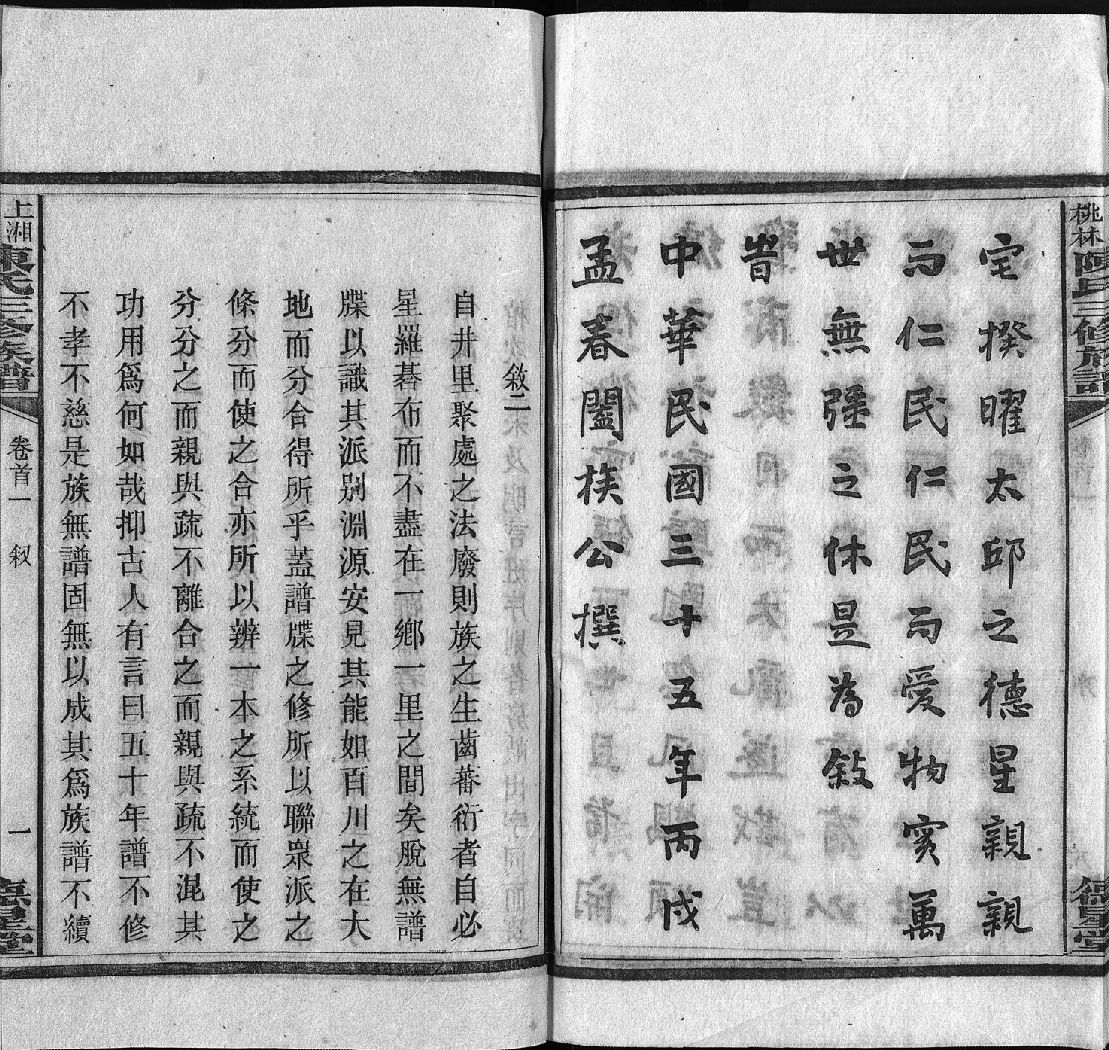 桃林陳氏三修族譜
德星堂
宅揆曜太邱之德星親親
而仁民仁民而愛物實萬
世無彊之休是為敘
旹
中華民國三十五年丙戌
孟春闔族公撰
敘二
自井里聚處之法廢則族之生齒蕃衍者自必
星羅碁布而不盡在一鄉一里之間矣脫無譜
牒以識其派別淵源安見其能如百川之在大
地而分合得所乎蓋譜牒之修所以聯眾派之
條分而使之合亦所以辨一本之系統而使之
分分之而親與疏不離合之而親與疏不混其
功用爲何如哉抑古人有言曰五十年譜不修
不孝不慈是族無譜固無以成其爲族譜不續
上湘陳氏三修族譜
卷首一
叙
一
德星堂